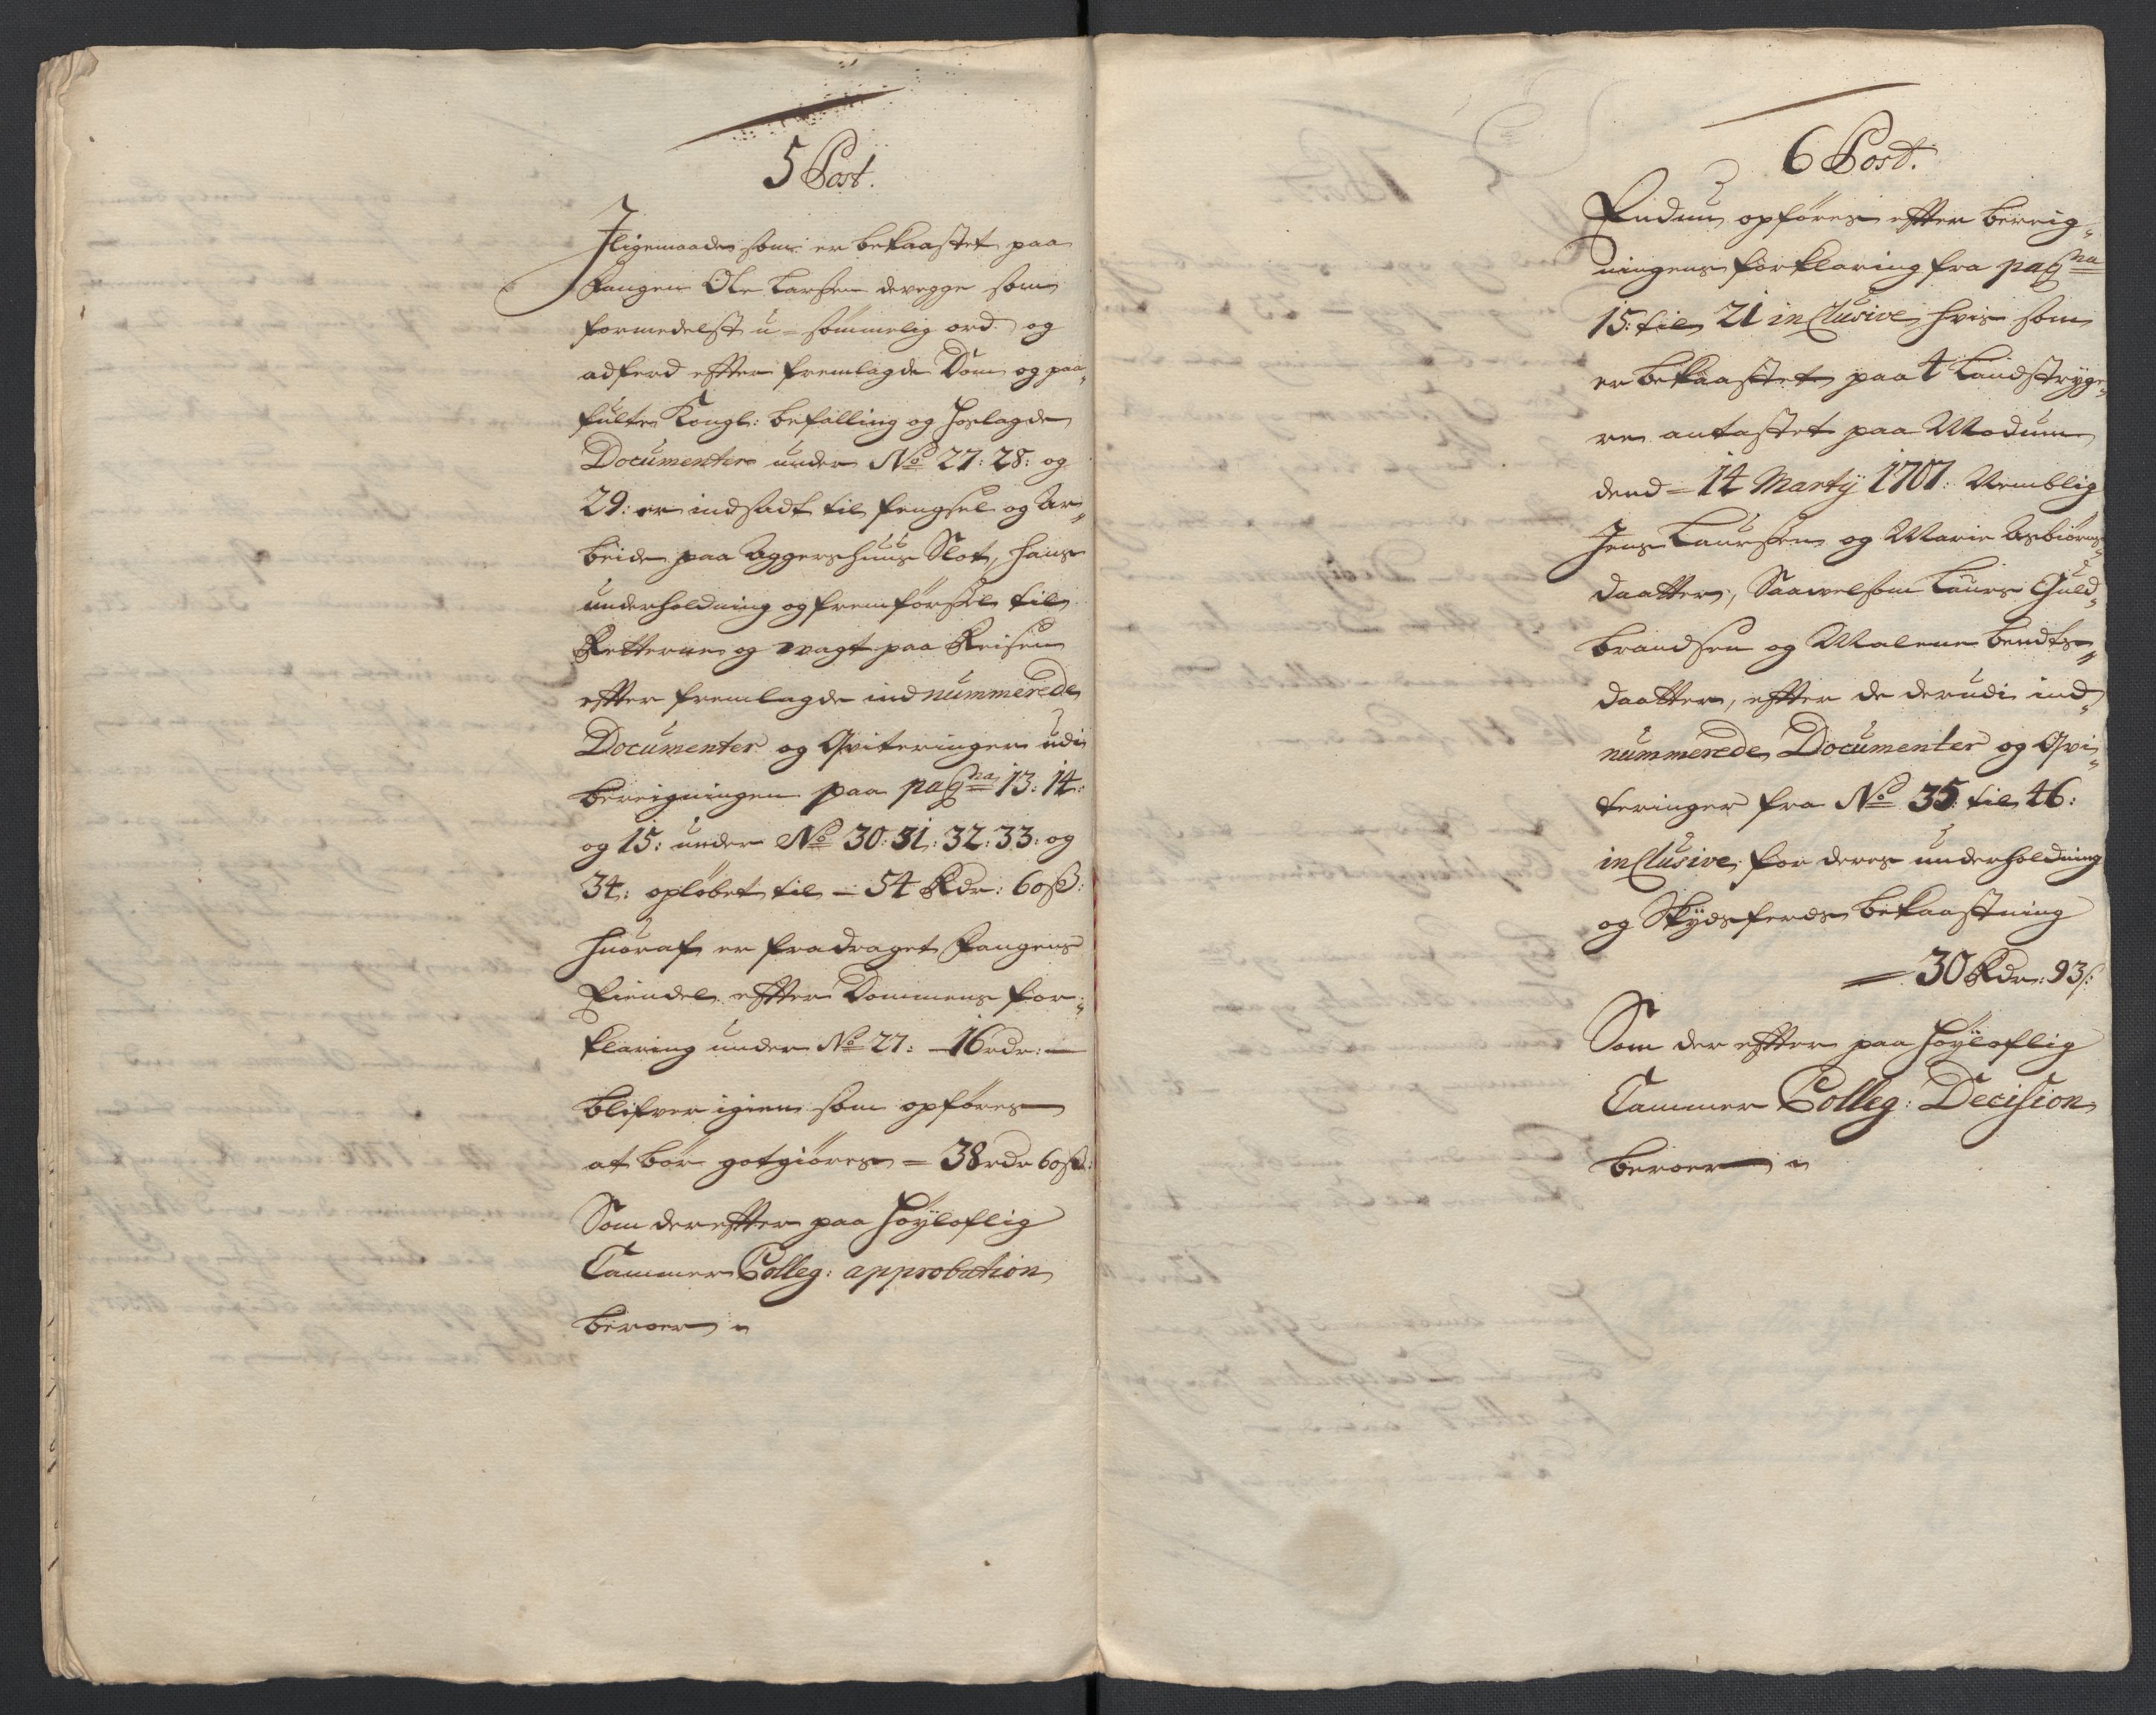 5 Post.
Jligemaade som er bekaastet paa
Fangen Ole Larsen devegge som
formedelst u-sømmelig ord og
adferd efter fremlagde Dom og paa„
fulte Kongl: befalling og hoslagde
Documenter under No 27: 28: og
29: er indsadt til fengsel og Ar„
beide paa Aggershuus Slot, hans
underholdning og fremførsel til
Retterne og wagt paa Reisen
efter fremlagde ind nummerede
Documenter og Qviteringer udi
bereigningen paa pagna 13: 14:
og 15: under No 30: 31: 32: 33: og
34: opløbet til – 54 Rdr: 60ß:
huoraf er fradraget Fangens
Eiendel efter Dommens for„
klaring under No 27: – 16 rdr: –
blifver igien som opføres
at bør gotgiøres = 38 rdr 60ß:
Som derefter paa høyloflig
Cammer Colleg: approbation
beroer
6 Post.
Endnu opføres efter bereig„
ningens forklaring fra pagna
15: til 21 inclusive, hvis som
er bekaastet paa 4 Landstryge„
re antastet paa Modum
dend = 14 Marty 1707: Nemblig
Jens Laursen og Marie Asbiørns„
daatter, Saavelsom Laurs Guld„
brandsen og Malene bendts„
daatter, efter de derudi ind„
nummerede Documenter og Qvi„
teringer fra No 35: til 46:
inclusive, for deres underholdning
og Skydsferds bekaastning
= 30 Rdr: 93ß:
Som der efter paa høyloflig
Cammer Colleg: Decision
beroer